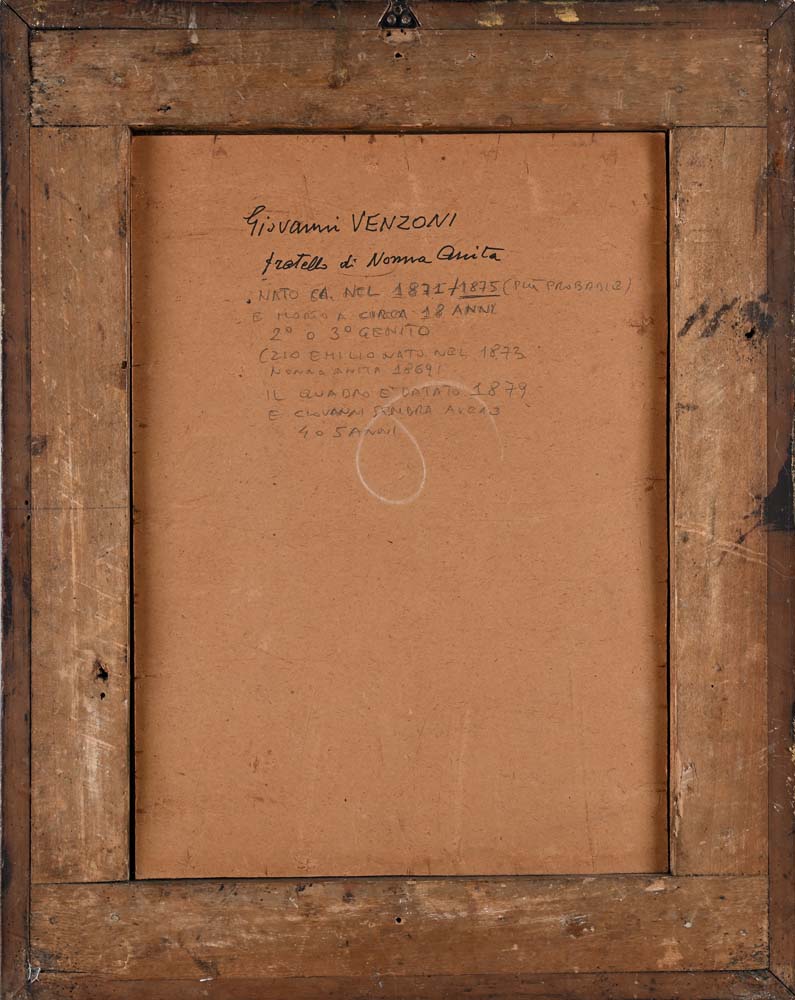 Giovanni VENZONI
fratello di Nonna Anita
NATO CA. NEL 1871/1875 (PIÙ PROBABILE)
E MORTO A CIRCA 18 ANNI
2° O 3° GENITO
(ZIO EMILIO NATO NEL 1873
NONNA ANITA 1869)
IL QUADRO E' DATATO 1879
E GIOVANNI SEMBRA AVERE
4 O 5 ANNI